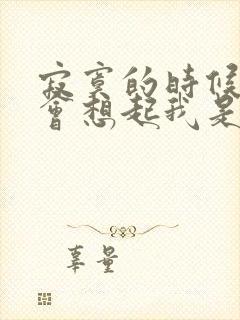 寂寞的時候
會想起我是
辜量